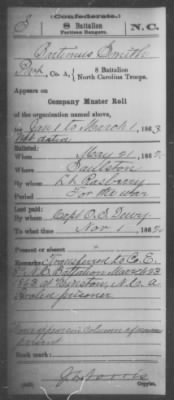 (Confederate.)
S 8 Battalion N.C.
Partisan Rangers.
Bartimus Smith
Co. A, 8 Battalion
North Carolina Troops.
Appears on
Company Muster Roll
of the organization named above,
for Jan 1 to March 1, 1863.
Not dated
Enlisted:
When May 21, 186
Where
By whom Lt. Rasberry
Period For the war
Last paid:
By whom Capt O.S. Dewy
To what time Nov 1, 186
Present or absent
Remarks: Transferred to Co. E.
8 N.C. Battalion March 23
1863 at Kinston, N.C. a
paroled prisoner.
column of names
present
Book mark:
Copyist.